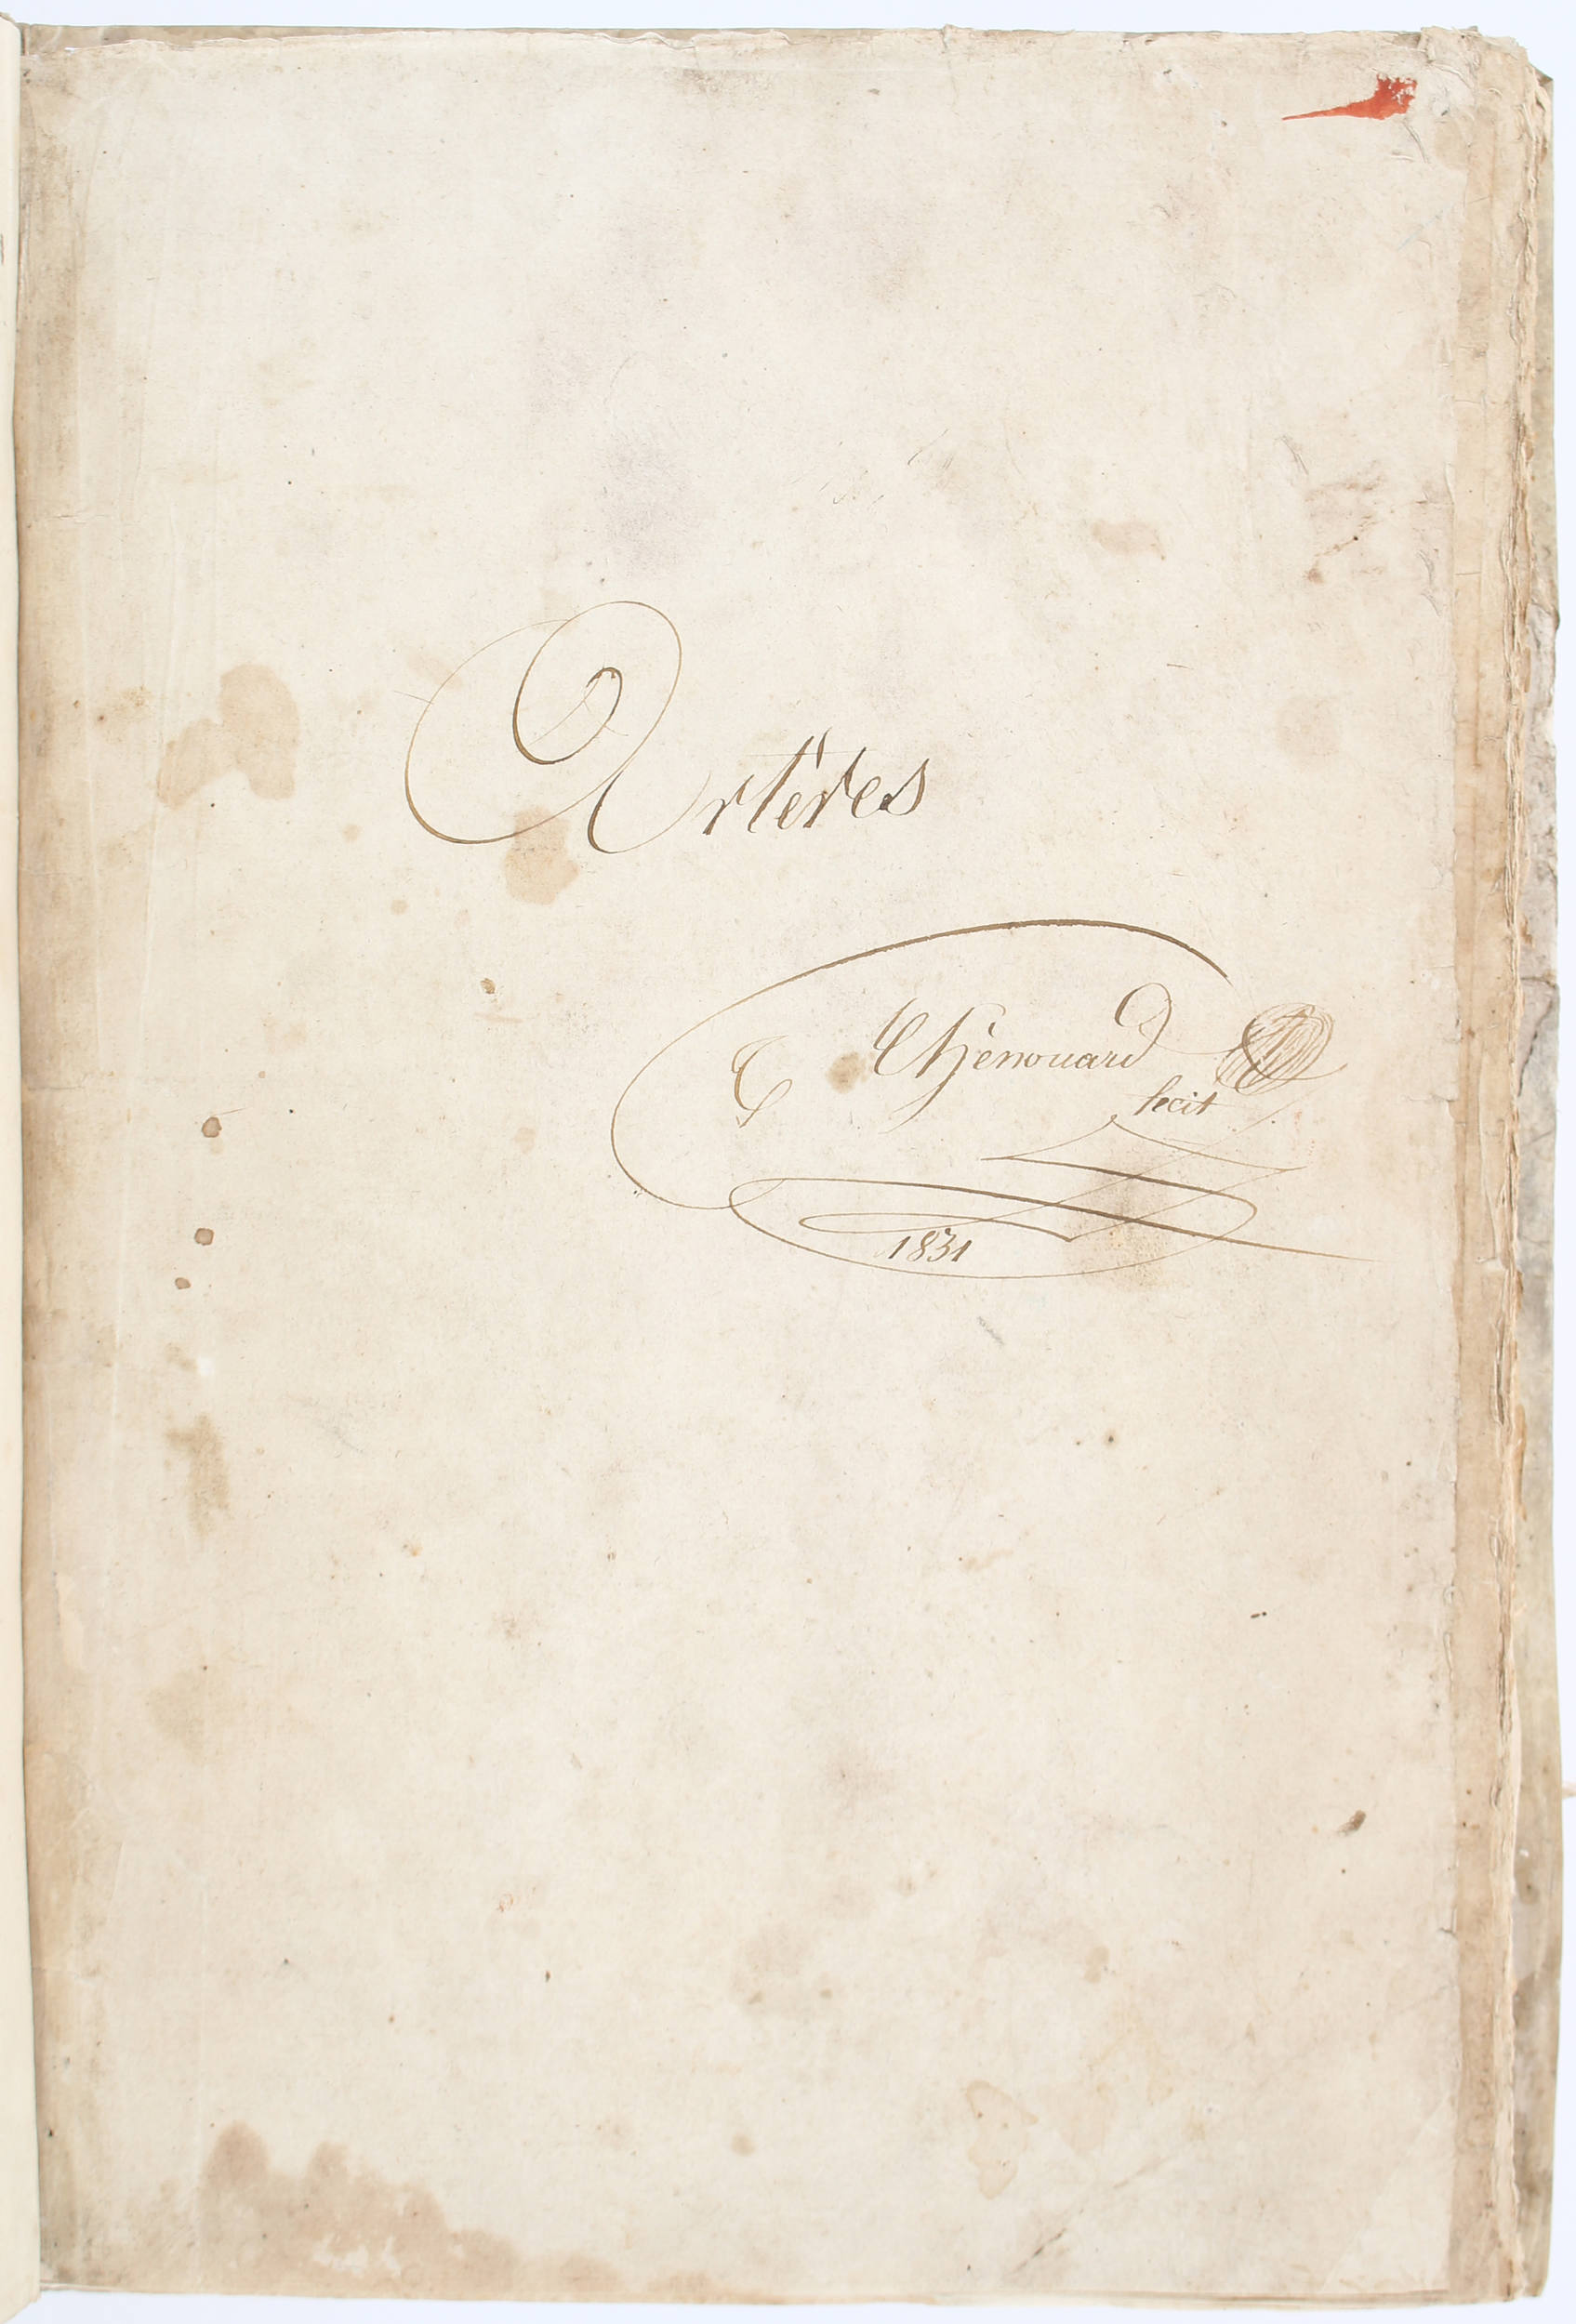 Artères
Thénouard
fecit
1831